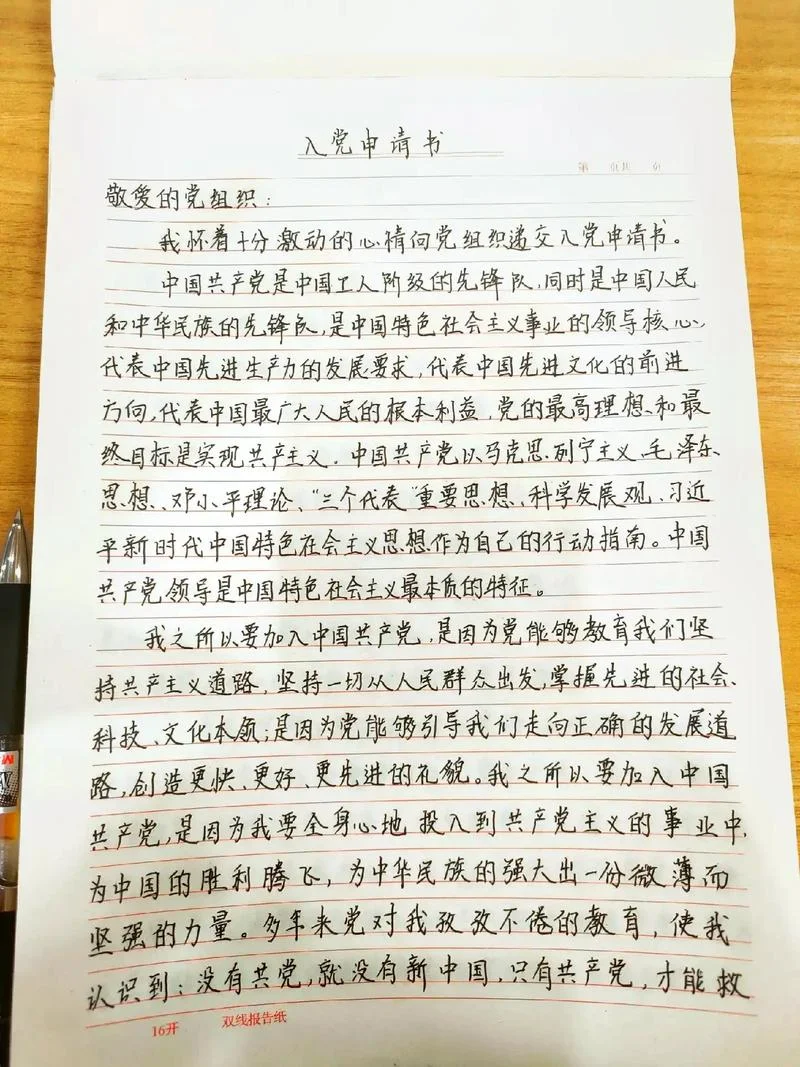 入党申请书
第 页共 页
敬爱的党组织：
我怀着十分激动的心情向党组织递交入党申请书。
中国共产党是中国工人阶级的先锋队,同时是中国人民
和中华民族的先锋队,是中国特色社会主义事业的领导核心,
代表中国先进生产力的发展要求,代表中国先进文化的前进
方向,代表中国最广大人民的根本利益,党的最高理想和最
终目标是实现共产主义。中国共产党以马克思列宁主义、毛泽东
思想、邓小平理论、“三个代表”重要思想、科学发展观、习近
平新时代中国特色社会主义思想作为自己的行动指南。中国
共产党领导是中国特色社会主义最本质的特征。
我之所以要加入中国共产党,是因为党能够教育我们坚
持共产主义道路,坚持一切从人民群众出发,掌握先进的社会、
科技、文化本领;是因为党能够引导我们走向正确的发展道
路,创造更快、更好、更先进的礼貌。我之所以要加入中国
共产党,是因为我要全身心地投入到共产党主义的事业中,
为中国的胜利腾飞,为中华民族的强大出一份微薄而
坚强的力量。多年来党对我孜孜不倦的教育,使我
认识到:没有共党,就没有新中国,只有共产党,才能救
16开 双线报告纸